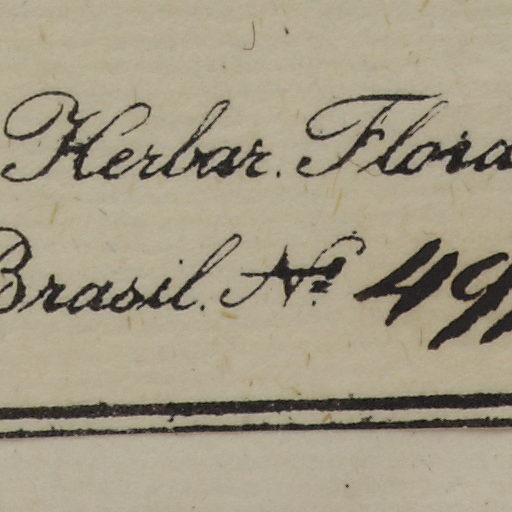 Herbar. Flora
Brasil. Nº 49